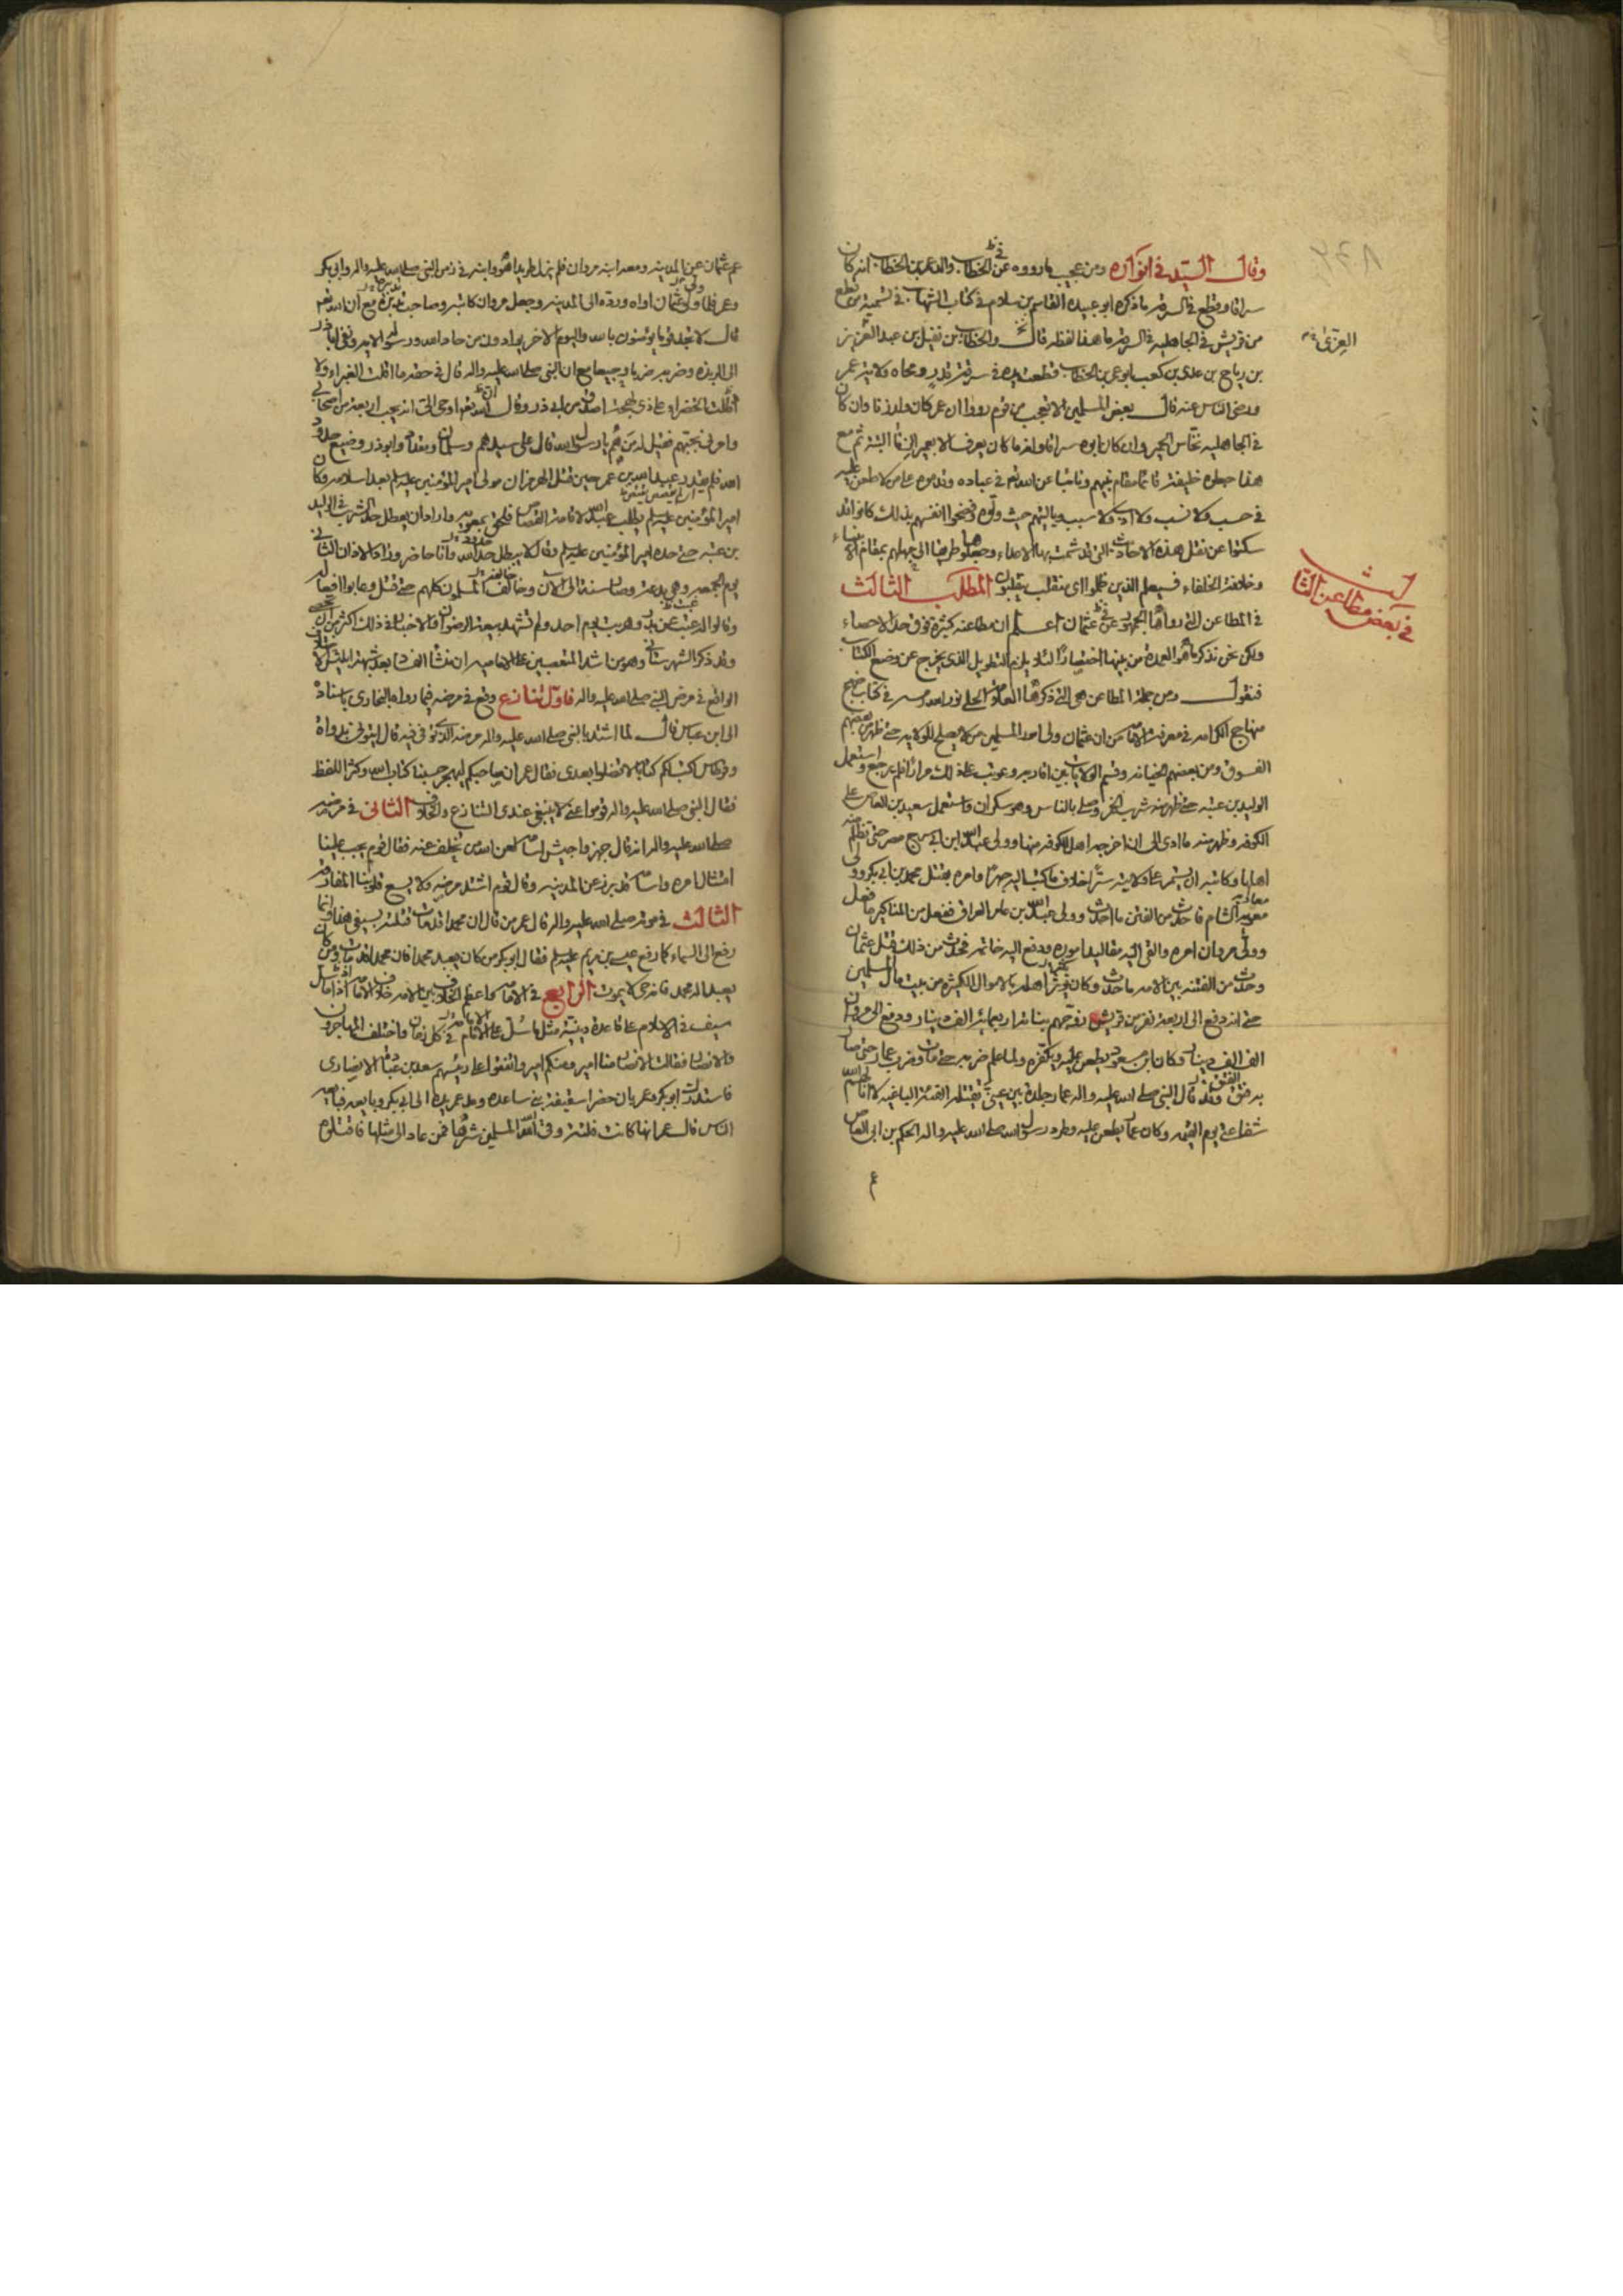 وقال السيد في انواره ومن عجيب ما رووه عن الخطاب والد عمر بن الخطاب انه كان
سراقا وقطع في السرقة ما ذكره ابو عبيده القاسم بن سلام في كتاب الشهاب في تسمية من قطع
من قريش في الجاهلية في السرقة ما هذا لفظه قال والخطاب بن نفيل بن عبد العزيز
العزى
بن رياح بن عدي بن كعب ابو عمر بن الخطاب قطعت يده في سرقة قدر ومحاه ولاية عمر
ورضى الناس عنه قال بعض المسلمين الا تعجب من قوم رووا ان عمر كان ولد زنا وان كان
في الجاهلية نخاس الحمير وان كان ابوه سراقا وانه ما كان يعرف الا بعمير ثم مع
هذا جعلوه خليفة قائما مقام نبيهم ونائبا عن الله تعالى في عباده وقدموه على من لا طعن عليه
في حسب ولا نسب ولا ادب ولا سبب ويا ليتهم حيث ولوه وفضحوا انفسهم بذلك كانوا قد
سكتوا عن نقل هذه الاحاديث التي قد شمتت بها الاعداء وجعلوها طريقا الى جهلهم بمقام الانبياء
وخلافة الخلفاء فسيعلم الذين ظلموا اي منقلب ينقلبون المطلب الثالث
في بعض مطاعن الثالث
في المطاعن التي رواها الجمهور عن عثمان اعلم ان مطاعنه كثيرة فوق حد الاحصاء
ولكن نحن نذكر ما هو العمدة من بينها اختصارا لئلا يلزم التطويل الذي يخرج عن وضع الكتاب
فنقول ومن جملة المطاعن هي التي ذكرها العلامة الحلي نور الله مرقده في كتاب
منهاج الكرامة في معرفة الامامة من ان عثمان ولى امور المسلمين من لا يصلح للولاية حتى ظهر من بعضهم
الفسوق ومن بعضهم الخيانة وقسم الولايات بين اقاربه وعوتب على ذلك مرارا فلم يرجع واستعمل
الوليد بن عتبه حتى ظهر منه شرب الخمر وصلى بالناس وهو سكران واستعمل سعيد بن العاص على
الكوفه وظهر منه ما ادى الى ان اخرجه اهل الكوفه منها وولى عبد الله ابن ابي سرح مصر حتى تظلم منه
اهلها وكاتبه ان يستمر على ولايته سرا خلاف ما كتب اليه جهرا وامره بقتل محمد بن ابي بكر وولى
معويه الشام فاحدث من الفتن ما احدث وولى عبد الله بن عامر العراق ففعل من المناكير ما فعل
وولى مروان امره والقى اليه مقاليد اموره ودفع اليه خاتمه فحدث من ذلك قتل عثمان
وحدث من الفتنه بين الامه ما حدث وكان يؤثر اهله بالاموال الكثيره من بيت مال المسلمين
حتى انه دفع الى اربعة نفر من قريش زوجهم بناته اربعمائة الف دينار ودفع الى مروان
الف الف دينار وكان ابن مسعود يطعن عليه ويكفره ولما علم ضربه حتى مات وضرب عمار حتى صار
به فتق وقد قال النبي صلى الله عليه واله عمار جلدة بين عيني تقتله الفئة الباغيه لا انالهم الله
شفاعتي يوم القيمه وكان عمار يطعن عليه وطرد رسول الله صلى الله عليه واله الحكم بن ابي العاص
عم
عم عثمان عن المدينه ومعه ابنه مروان فلم يزل طريدا هو وابنه في زمن النبي صلى الله عليه واله وابي بكر
وعمر فلما ولى عثمان اواه ورده الى المدينه وجعل مروان كاتبه وصاحب تدبيره مع ان الله تعالى
قال لا تجد قوما يؤمنون بالله واليوم الاخر يوادون من حاد الله ورسوله الايه ونفى ابا ذر
الى الربذه وضربه ضربا وجيعا مع ان النبي صلى الله عليه واله قال في حقه ما اقلت الغبراء ولا
اظلت الخضراء على ذي لهجة اصدق من ابي ذر وقال ان الله تعالى اوحى الي انه يحب اربعة من اصحابي
وامرني بحبهم فقيل له من هم يا رسول الله قال علي سيدهم وسلمان ومقداد وابو ذر وضيع حدود
الله فلم يقتل عبيد الله بن عمر حين قتل الهرمزان مولى امير المؤمنين عليه السلام بعد اسلامه وكان
امير المؤمنين عليه السلام يطلب عبيد الله لاقامة القصاص فلحق بمعويه واراد ان يعطل حد الشرب في الوليد
بن عتبه حتى حده امير المؤمنين عليه السلام وقال لا يبطل حد الله وانا حاضر وزاد الاذان الثاني
يوم الجمعه وهي بدعة وصار سنة الى الان وخالفه المسلمون كلهم حتى قتل وعابوا افعاله
وقالوا له غبت عن بدر وهربت يوم احد ولم تشهد بيعة الرضوان والاخبار في ذلك اكثر من ان تحصى
وقد ذكر الشهرستاني وهو من اشد المتعصبين على الاماميه ان منشأ الفساد بعد شبهة ابليس الاختلاف
الواقع في مرض النبي صلى الله عليه واله فاول تنازع وقع في مرضه فيما رواه البخاري باسناده
الى ابن عباس قال لما اشتد بالنبي صلى الله عليه واله مرضه الذي توفي فيه قال ايتوني بدواة
وقرطاس اكتب لكم كتابا لا تضلوا بعدي فقال عمر ان صاحبكم ليهجر حسبنا كتاب الله وكثر اللغط
فقال النبي صلى الله عليه واله قوموا عني لا ينبغي عندي التنازع والخلاف الثاني في مرضه
صلى الله عليه واله انه قال جهزوا جيش اسامه لعن الله من تخلف عنه فقال قوم يجب علينا
امتثال امره واسامه قد برز عن المدينه وقال قوم اشتد مرضه ولا يسع قلوبنا المفارقه
الثالث في موته صلى الله عليه واله قال عمر من قال ان محمدا قد مات قتلته بسيفي هذا وانما
رفع الى السماء كما رفع عيسى بن مريم عليه السلام فقال ابو بكر من كان يعبد محمدا فان محمدا قد مات ومن كان
يعبد اله محمد فانه حي لا يموت الرابع في الامامه واعظم الخلاف بين الامه خلاف الامامه اذ ما سل
سيف في الاسلام على قاعدة دينيه مثل ما سل على الامامه في كل زمان واختلف المهاجرون
والانصار فقالت الانصار منا امير ومنكم امير واتفقوا على رئيسهم سعد بن عباده الانصاري
فاستدرك ابو بكر وعمر بان حضرا سقيفة بني ساعده ومد عمر يده الى ابي بكر وبايعه فبايعه
الناس قال عمر انها كانت فلتة وقى الله المسلمين شرها فمن عاد الى مثلها فاقتلوه